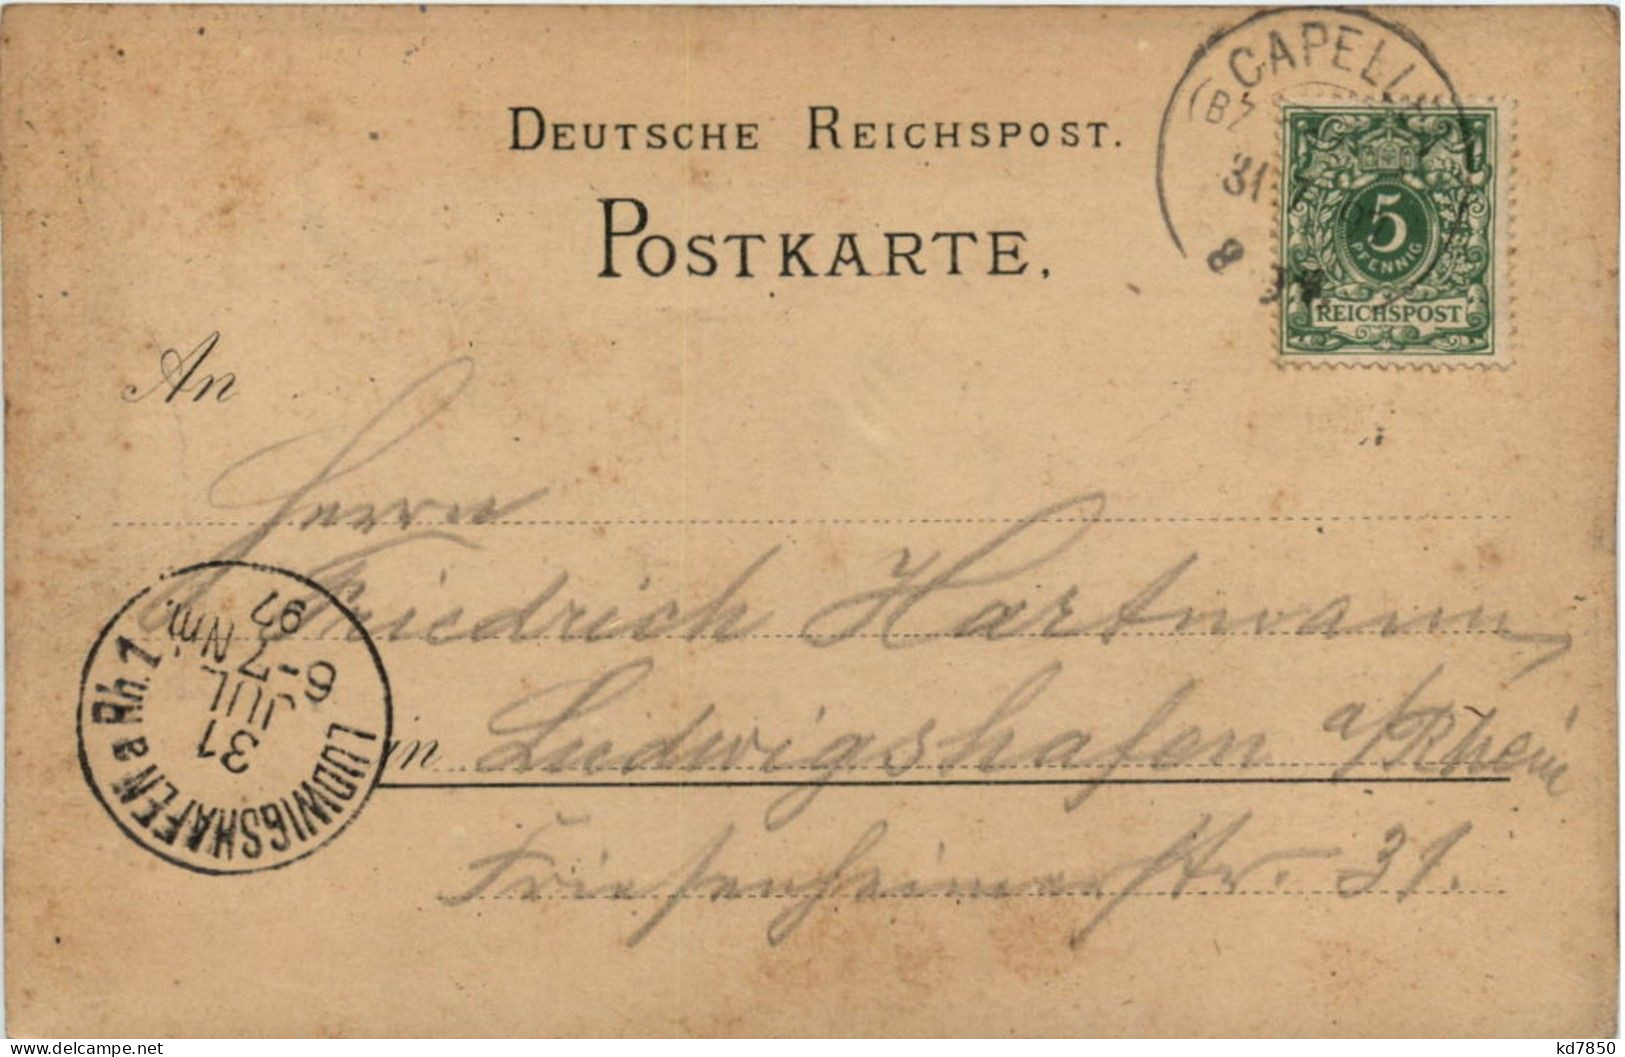 CAPELL
(BZ
31 7
8
DEUTSCHE REICHSPOST.
POSTKARTE.
5
PFENNIG
REICHSPOST
An
Herrn
Friedrich Hartmann,
in Ludwigshafen a/Rhein
Friesenheimerstr. 31.
LUDWIGSHAFEN a Rh. 1
31
JUL
6-7
Nm.
97
delcampe.net
kd7850